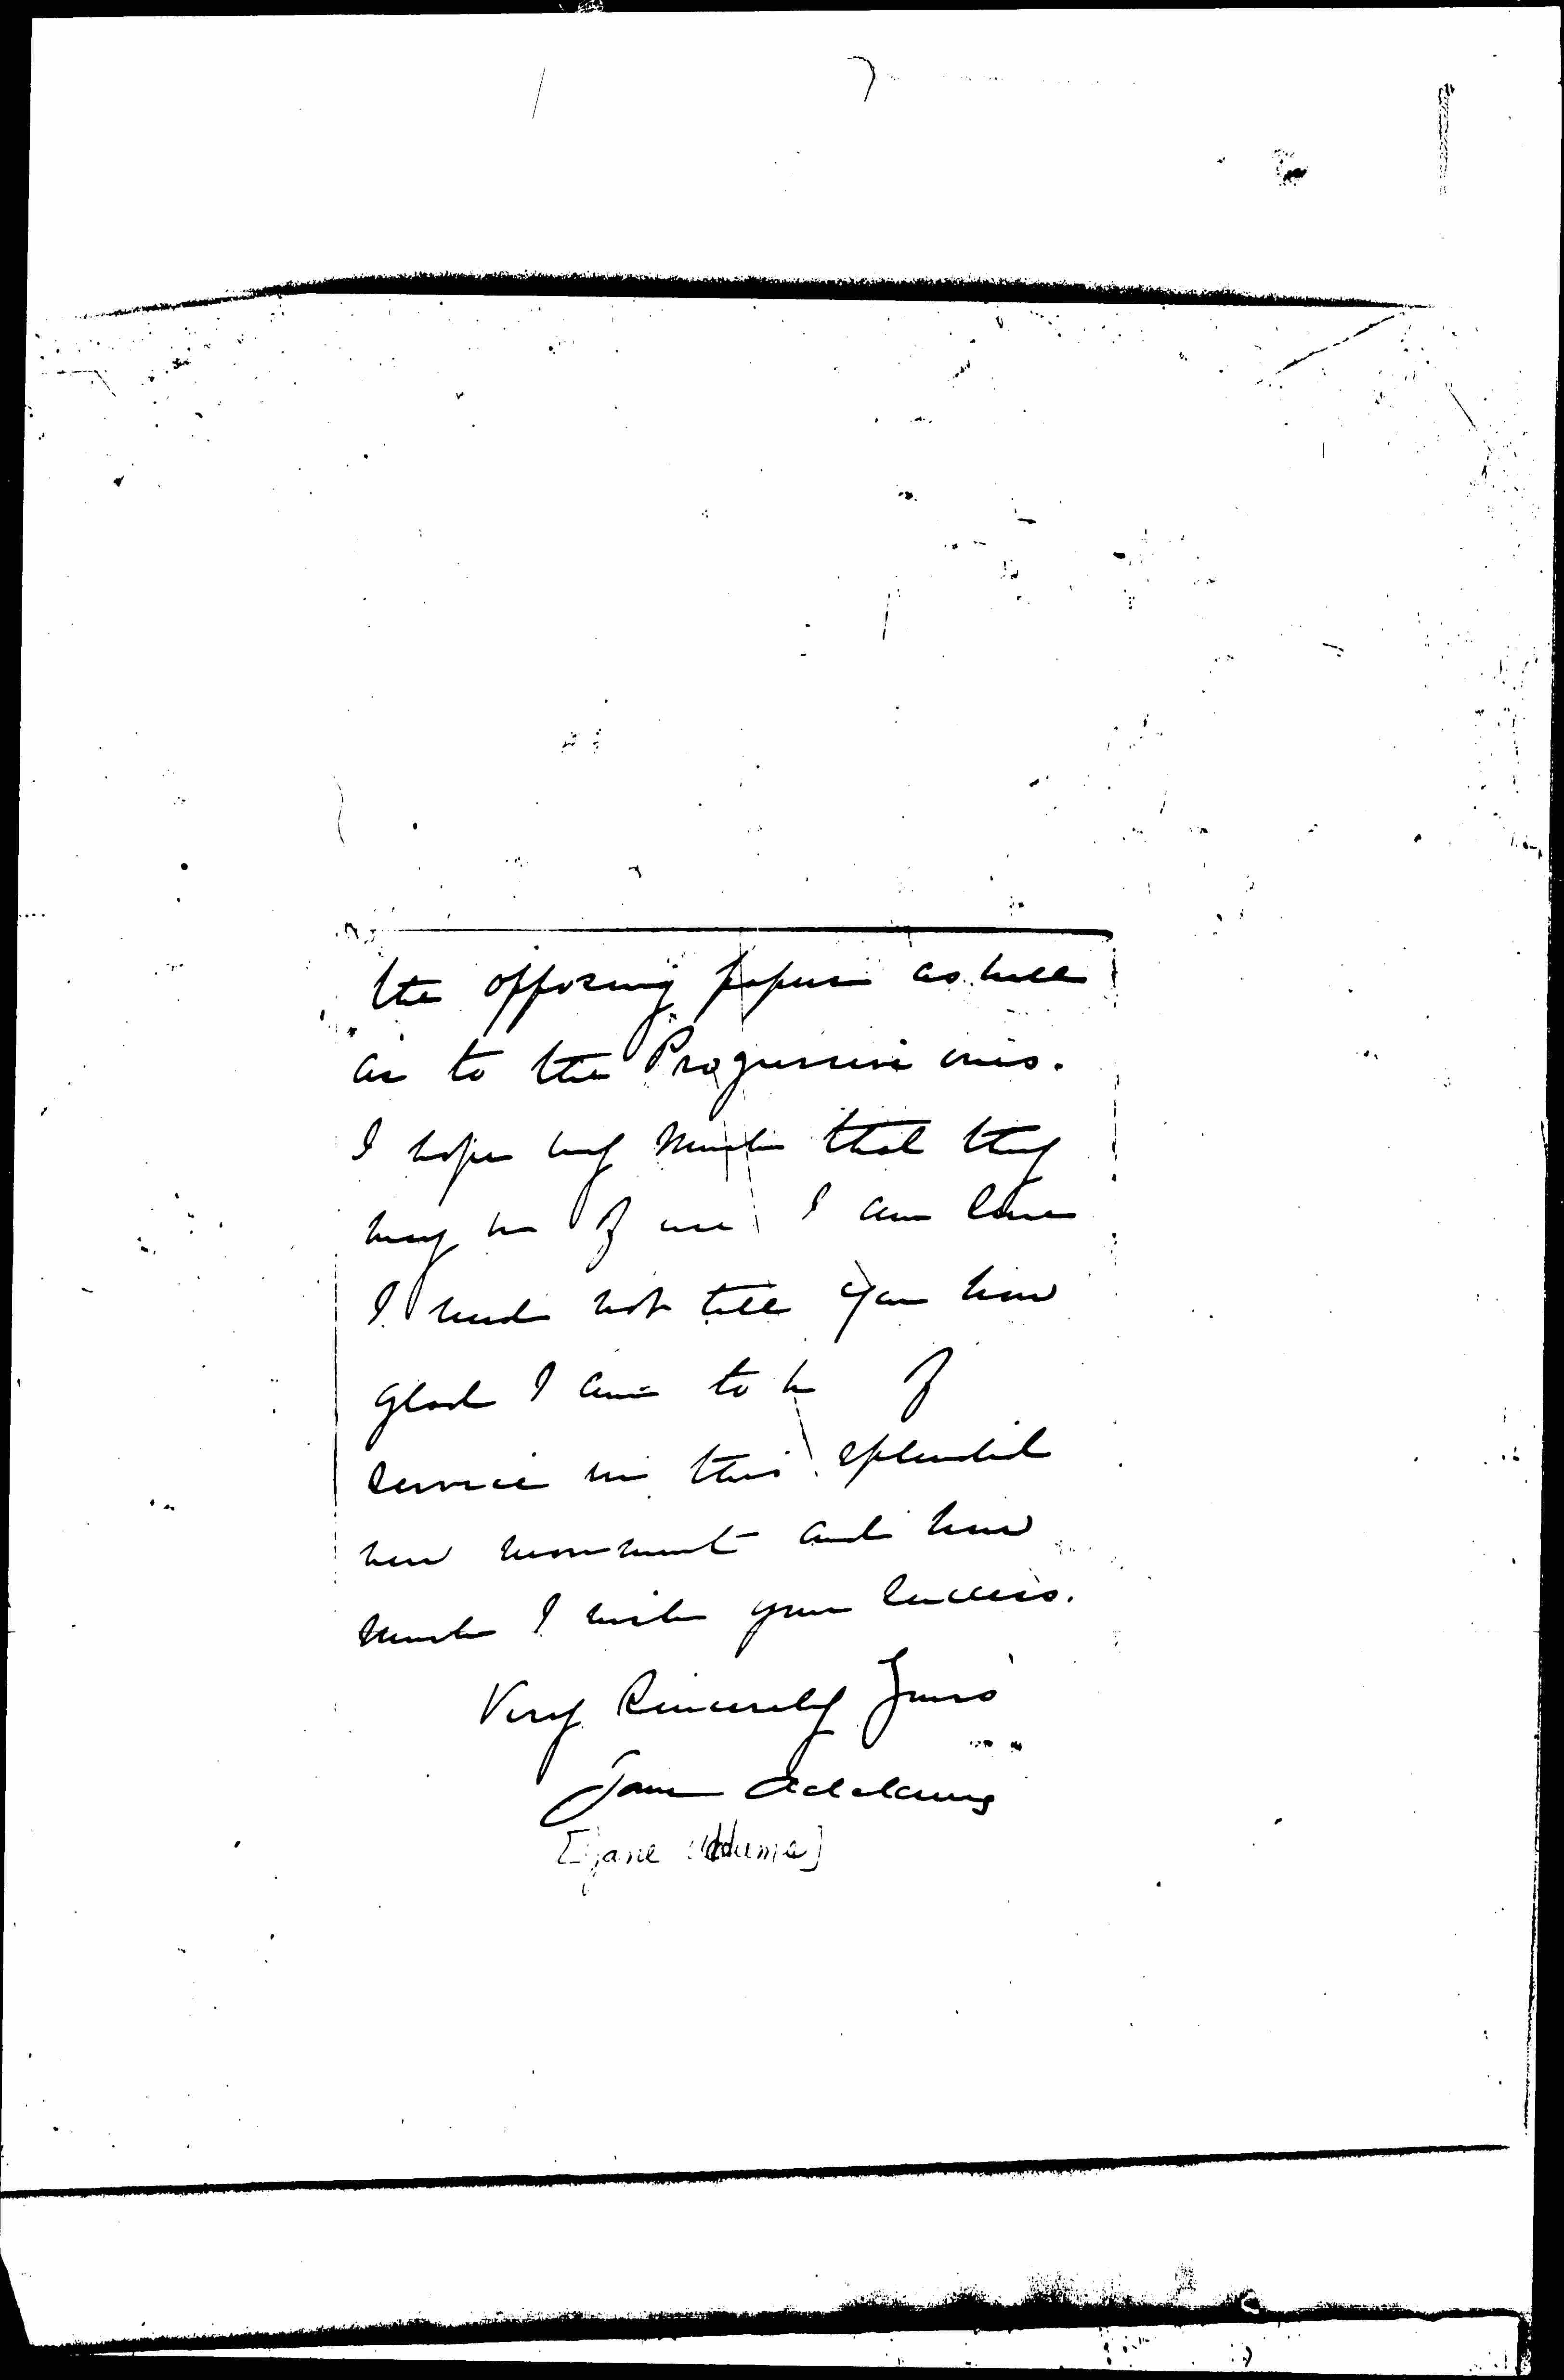 the opposing papers as well
as to the Progressive ones.
I hope very much that they
may be of use I am sure
I need not tell you how
glad I am to be of
service in this splendid
new movement and how
much I wish your success.
Very Sincerely Yours
Jane Addams
[Jane Addams]